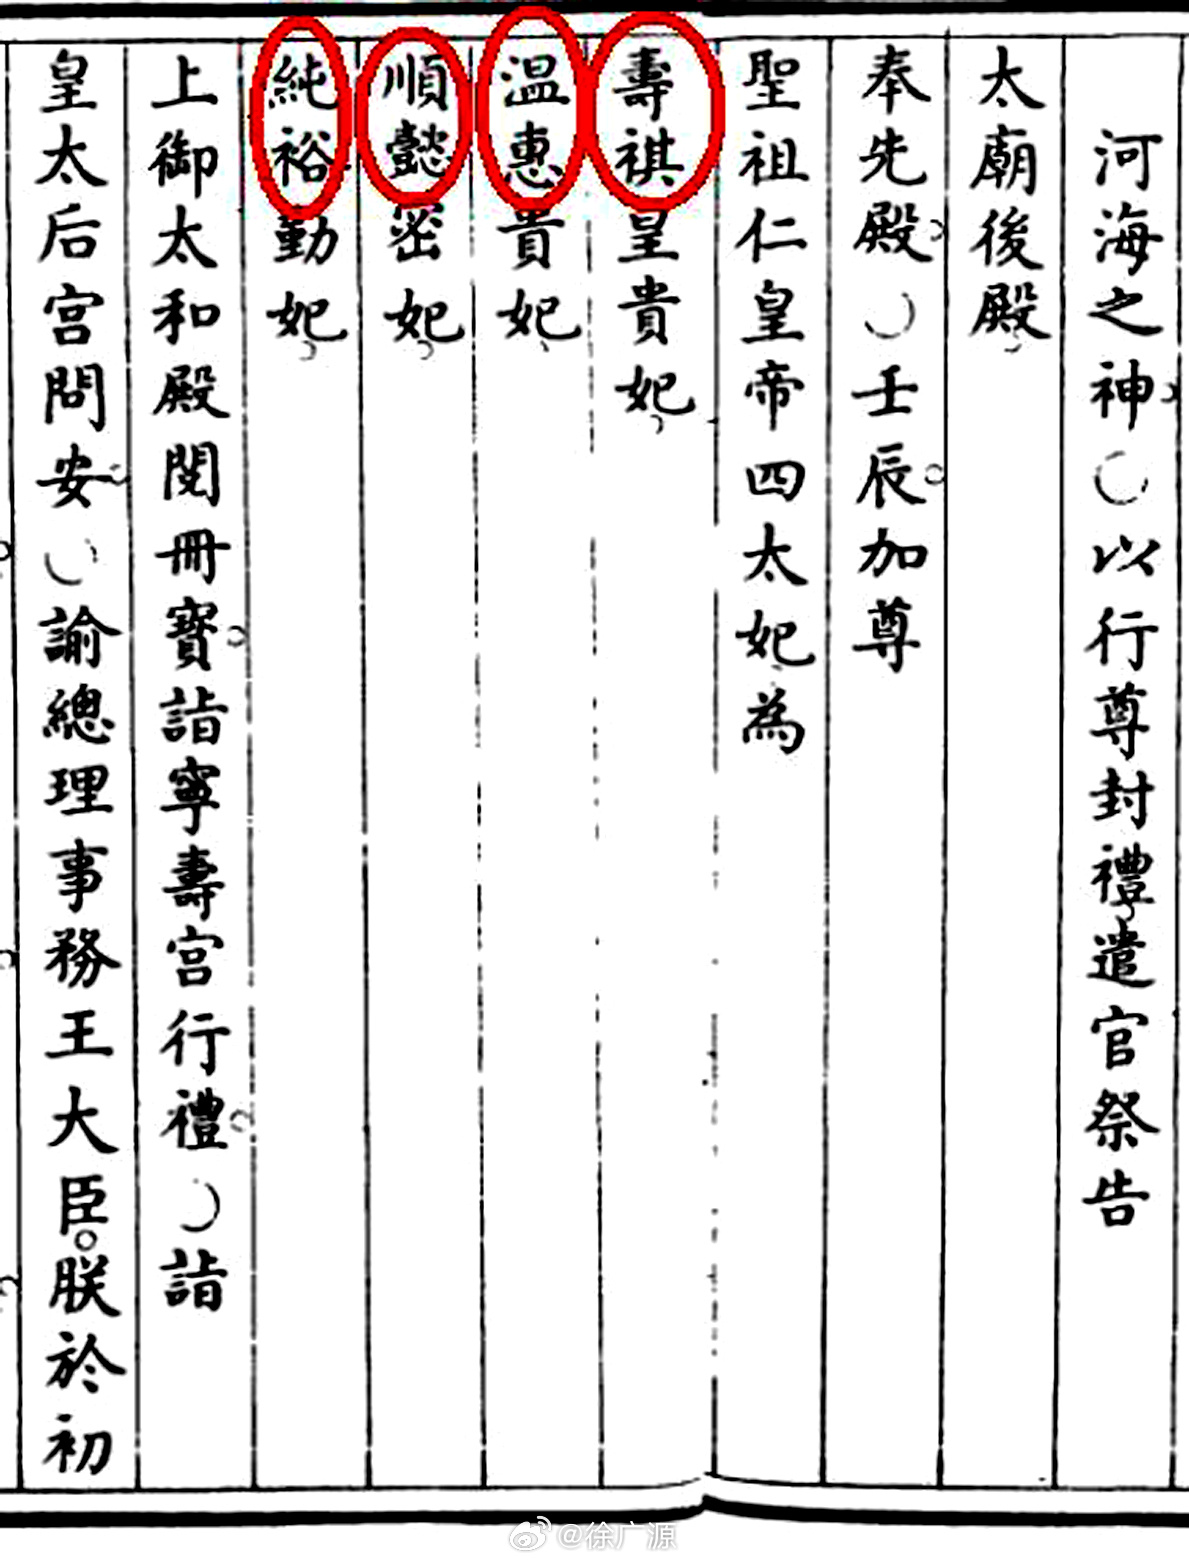 河海之神○以行尊封禮遣官祭告
太廟後殿
奉先殿○壬辰加尊
聖祖仁皇帝四太妃為
壽祺皇貴妃
温惠貴妃
順懿密妃
純裕勤妃
上御太和殿閱冊寶詣寧壽宮行禮○詣
皇太后宮問安○諭總理事務王大臣朕於初
@徐广源